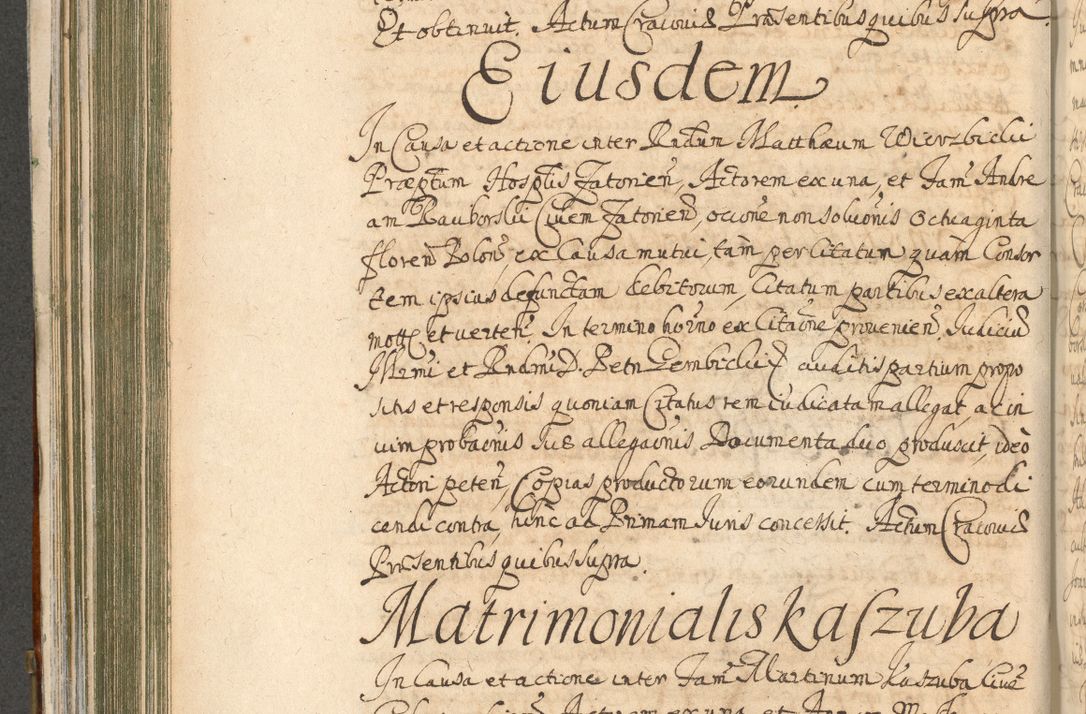 Et obtinuit. Actum Cracoviæ Præsentibus quibus supra.
Eiusdem
In Causa et actione inter Rndum Matthæum Wierzbicki
Præptum Hosplis Zatorien, Actorem ex una, et Fam Andre
am Rauborski Civem Zatorien, ocione non soluonis Octuaginta
floren Polon, ex Causa mutui, tam per Citatum quam Consor
tem ipsius defunctam debitorum, Citatum partibus ex altera
mott et verten. In termino horno ex Citaone provenien. Judiciu
Illrmi et Rndmi D. Petri Gembicki auditis partium propo
sitis et responsis quoniam Citatus rem iudicatam allegat, ac in
vim probaonis Ius allegaonis Documenta duo produxit, ideo
Actori peten, Copias productorum eorundem cum termino di
cendi contra, hinc ad Primam Juris concessit. Actum Cracoviæ
Præsentibus quibus supra.
Matrimonialis kaszuba
In Causa et actione inter Fam Martinum Kaszuba Civē